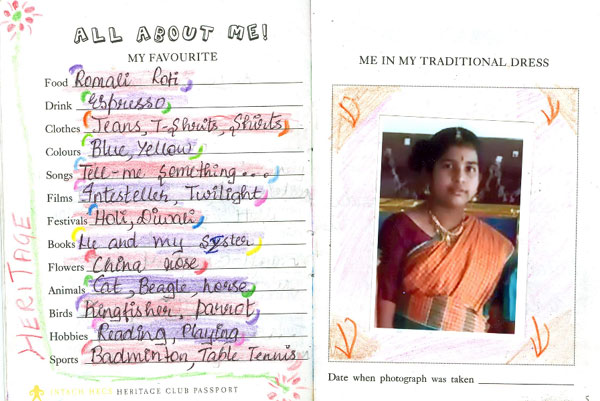 ALL ABOUT ME!
MY FAVOURITE
Food Romali Roti
Drink Espresso
Clothes Jeans, T-Shrits, Shirts
Colours Blue, Yellow
Songs Tell-me something...
Films Intesteller, Twilight
Festivals Holi, Diwali
Books Me and my Sister
Flowers China rose
Animals Cat, Beagle, horse
Birds Kingfisher, parrot
Hobbies Reading, Playing
Sports Badminton, Table Tennis
HERITAGE
INTACH HECS HERITAGE CLUB PASSPORT
ME IN MY TRADITIONAL DRESS
Date when photograph was taken
5